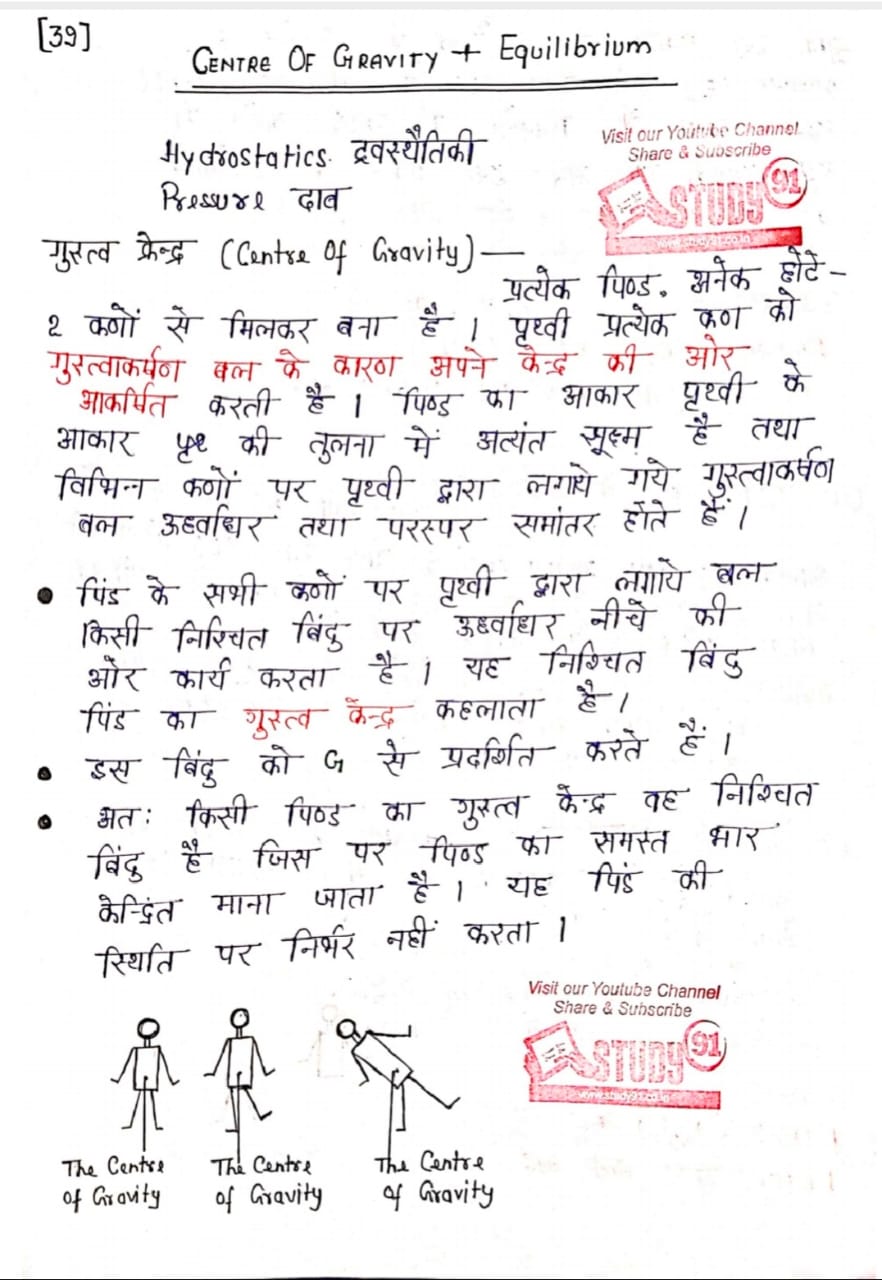 [39]
CENTRE OF GRAVITY + Equilibrium
Hydrostatics द्रवस्थैतिकी
Pressure दाब
Visit our Youtube Channel
Share & Subscribe
STUDY 91
www.study91.co.in
गुरुत्व केन्द्र (Centre Of Gravity) —
प्रत्येक पिण्ड. अनेक छोटे -
2 कणों से मिलकर बना है । पृथ्वी प्रत्येक कण को
गुरुत्वाकर्षण बल के कारण अपने केन्द्र की ओर
आकर्षित करती है । पिण्ड का आकार पृथ्वी के
आकार की तुलना में अत्यंत सूक्ष्म है तथा
विभिन्न कणों पर पृथ्वी द्वारा लगाये गये गुरुत्वाकर्षण
बल ऊर्ध्वाधर तथा परस्पर समांतर होते हैं ।
• पिंड के सभी कणों पर पृथ्वी द्वारा लगाये बल
किसी निश्चित बिंदु पर ऊर्ध्वाधर नीचे की
ओर कार्य करता है । यह निश्चित बिंदु
पिंड का गुरुत्व केन्द्र कहलाता है ।
• इस बिंदु को G से प्रदर्शित करते हैं ।
• अतः किसी पिण्ड का गुरुत्व केन्द्र वह निश्चित
बिंदु है जिस पर पिण्ड का समस्त भार
केन्द्रित माना जाता है । यह पिंड की
स्थिति पर निर्भर नहीं करता ।
Visit our Youtube Channel
Share & Subscribe
STUDY 91
www.study91.co.in
The Centre
of Gravity
The Centre
of Gravity
The Centre
of Gravity